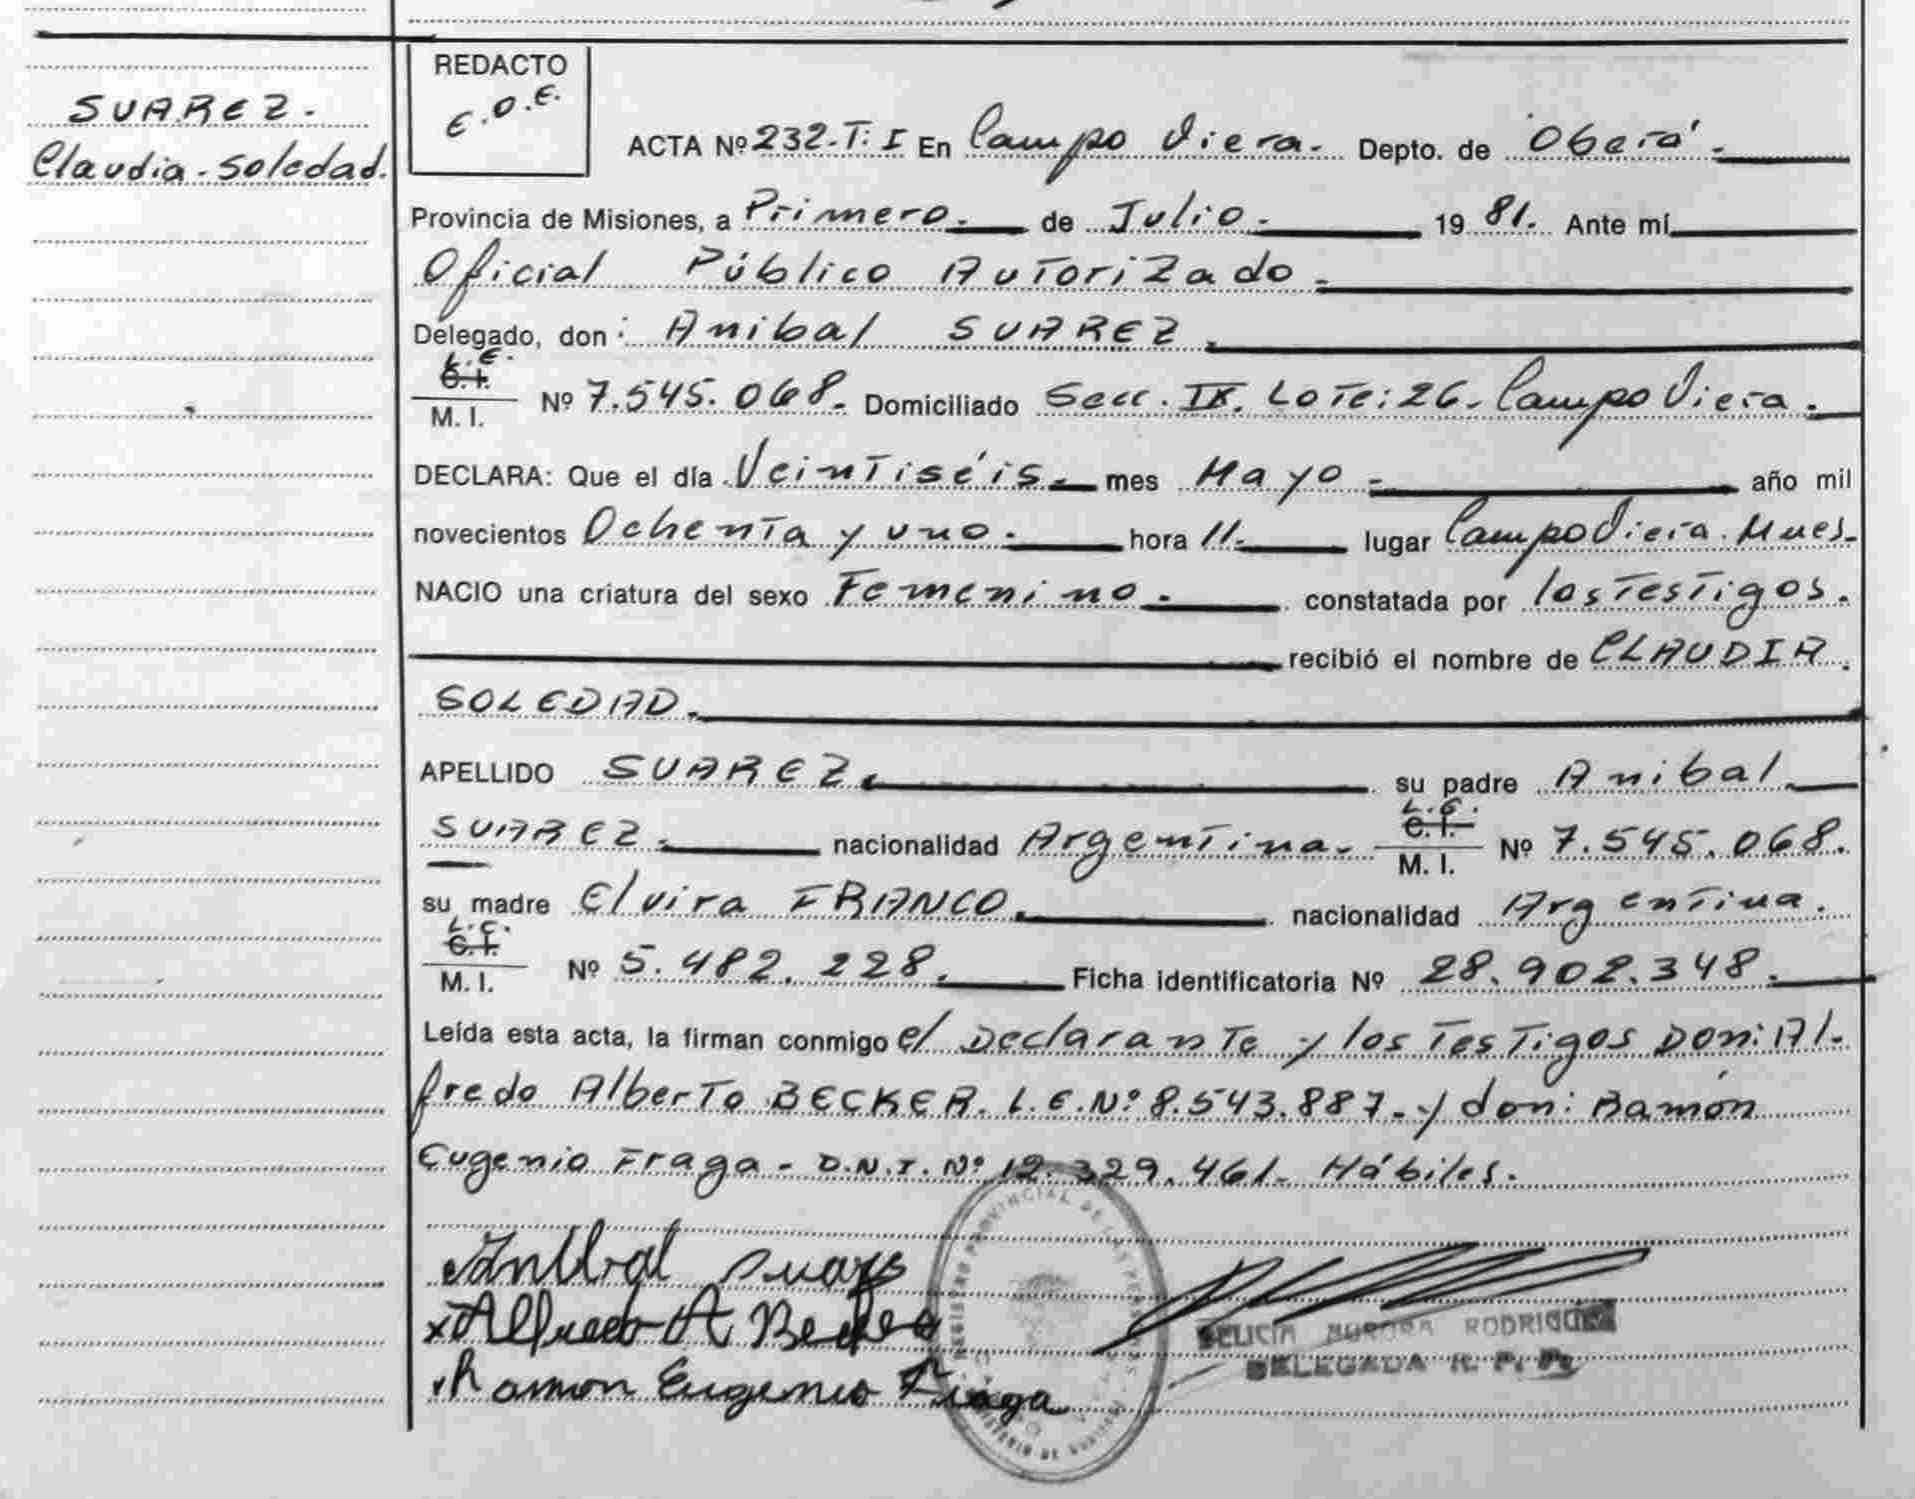 SUAREZ.
Claudia-Soledad.
REDACTO
E.O.E.
ACTA Nº 232-T: I En Campo Viera. Depto. de Oberá.
Provincia de Misiones, a Primero. de Julio. 19 81. Ante mí
Oficial Público Autorizado.
Delegado, don: Anibal SUAREZ.
L.E.
C.I.
M. I. Nº 7.545.068. Domiciliado Secc. IX. Lote: 26. Campo Viera.
DECLARA: Que el día Veintiséis. mes Mayo. año mil
novecientos Ochenta y uno. hora 11. lugar Campo Viera. Mnes.
NACIO una criatura del sexo Femenino. constatada por los Testigos.
recibió el nombre de CLAUDIA
SOLEDAD.
APELLIDO SUAREZ. su padre Anibal
SUAREZ. nacionalidad Argentina. L.E. C.I. M. I. Nº 7.545.068.
su madre Elvira FRANCO. nacionalidad Argentina.
L.C.
C.I.
M. I. Nº 5.482.228. Ficha identificatoria Nº 28.902.348.
Leída esta acta, la firman conmigo el Declarante y los Testigos Don: Al-
fredo Alberto BECKER. L.E.Nº 8.543.887. y don: Ramón
Eugenio Fraga - D.N.I. Nº 12.329.461. Hábiles.
Anibal Suares
Alfredo A Becker
Ramon Eugenio Fraga
REGISTRO PROVINCIAL DE LAS PERSONAS
FELICIA AURORA RODRIGUEZ
DELEGADA R. P. P.